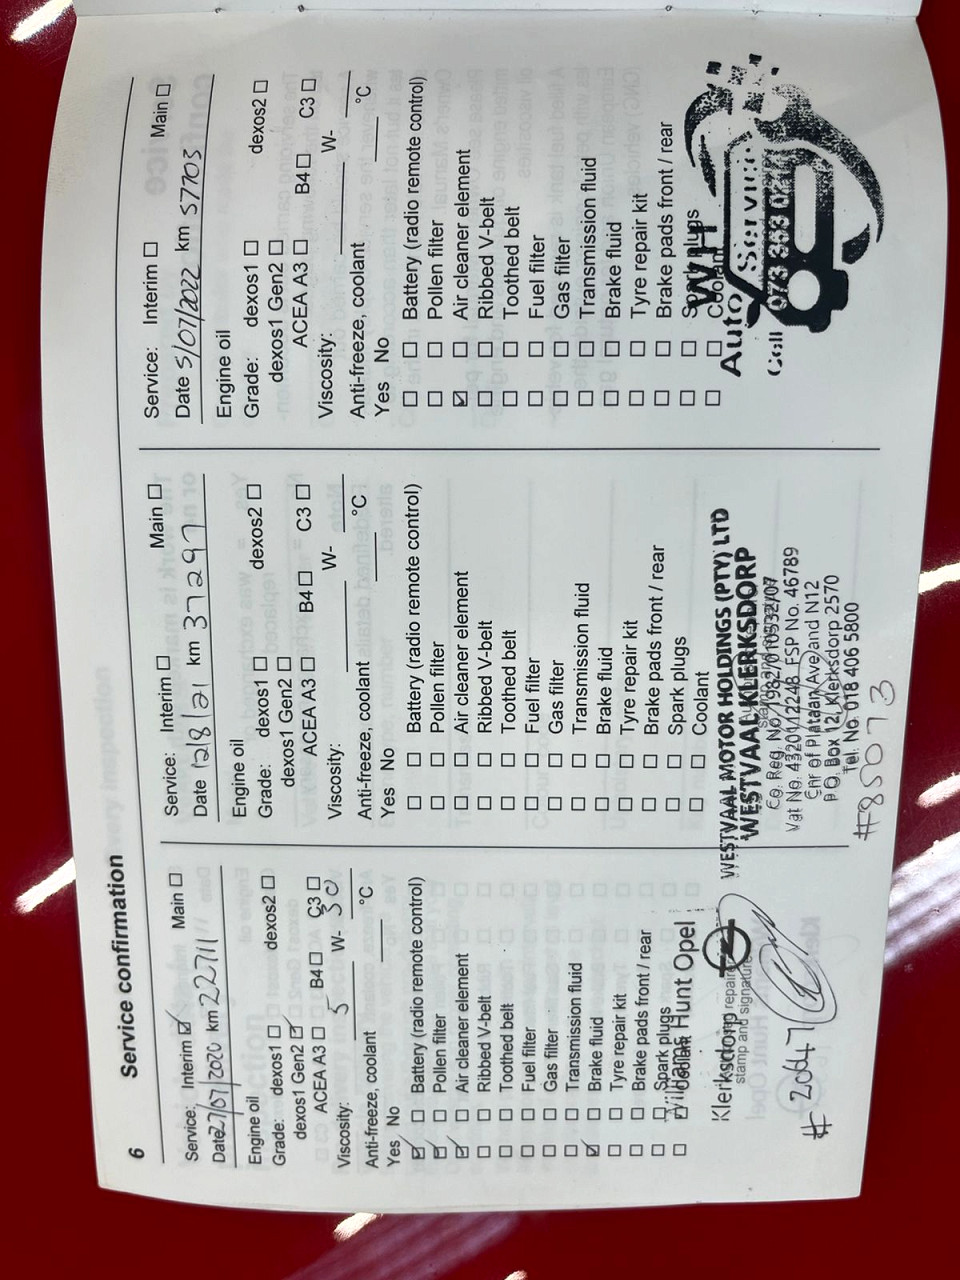 6 Service confirmation
Service: Interim ☑ Main ☐
Date 27/07/2020 km 22711
Engine oil
Grade: dexos1 ☐ dexos2 ☐
dexos1 Gen2 ☑
ACEA A3 ☐ B4 ☐ C3 ☐
Viscosity: 5 W- 30
Anti-freeze, coolant °C
Yes No
☑ ☐ Battery (radio remote control)
☑ ☐ Pollen filter
☑ ☐ Air cleaner element
☐ ☐ Ribbed V-belt
☐ ☐ Toothed belt
☐ ☐ Fuel filter
☐ ☐ Gas filter
☐ ☐ Transmission fluid
☑ ☐ Brake fluid
☐ ☐ Tyre repair kit
☐ ☐ Brake pads front / rear
☐ ☐ Spark plugs
☐ ☐ Coolant
Williams Hunt Opel
Klerksdorp
stamp and signature
# 20647
Service: Interim ☐ Main ☐
Date 12/8/21 km 37297
Engine oil
Grade: dexos1 ☐ dexos2 ☐
dexos1 Gen2 ☐
ACEA A3 ☐ B4 ☐ C3 ☐
Viscosity: W-
Anti-freeze, coolant °C
Yes No
☐ ☐ Battery (radio remote control)
☐ ☐ Pollen filter
☐ ☐ Air cleaner element
☐ ☐ Ribbed V-belt
☐ ☐ Toothed belt
☐ ☐ Fuel filter
☐ ☐ Gas filter
☐ ☐ Transmission fluid
☐ ☐ Brake fluid
☐ ☐ Tyre repair kit
☐ ☐ Brake pads front / rear
☐ ☐ Spark plugs
☐ ☐ Coolant
WESTVAAL MOTOR HOLDINGS (PTY) LTD
WESTVAAL KLERKSDORP
Co. Reg. No. 1982/010532/07
Vat No. 4320112248 FSP No. 46789
Cnr of Plataan Ave and N12
P O Box 12, Klerksdorp 2570
Tel: No. 018 406 5800
#85073
Service: Interim ☐ Main ☐
Date 5/07/2022 km 57703
Engine oil
Grade: dexos1 ☐ dexos2 ☐
dexos1 Gen2 ☐
ACEA A3 ☐ B4 ☐ C3 ☐
Viscosity: W-
Anti-freeze, coolant °C
Yes No
☐ ☐ Battery (radio remote control)
☐ ☐ Pollen filter
☑ ☐ Air cleaner element
☐ ☐ Ribbed V-belt
☐ ☐ Toothed belt
☐ ☐ Fuel filter
☐ ☐ Gas filter
☐ ☐ Transmission fluid
☐ ☐ Brake fluid
☐ ☐ Tyre repair kit
☐ ☐ Brake pads front / rear
☐ ☐ Spark plugs
☐ ☐ Coolant
WH
Auto Service
Call 073 363